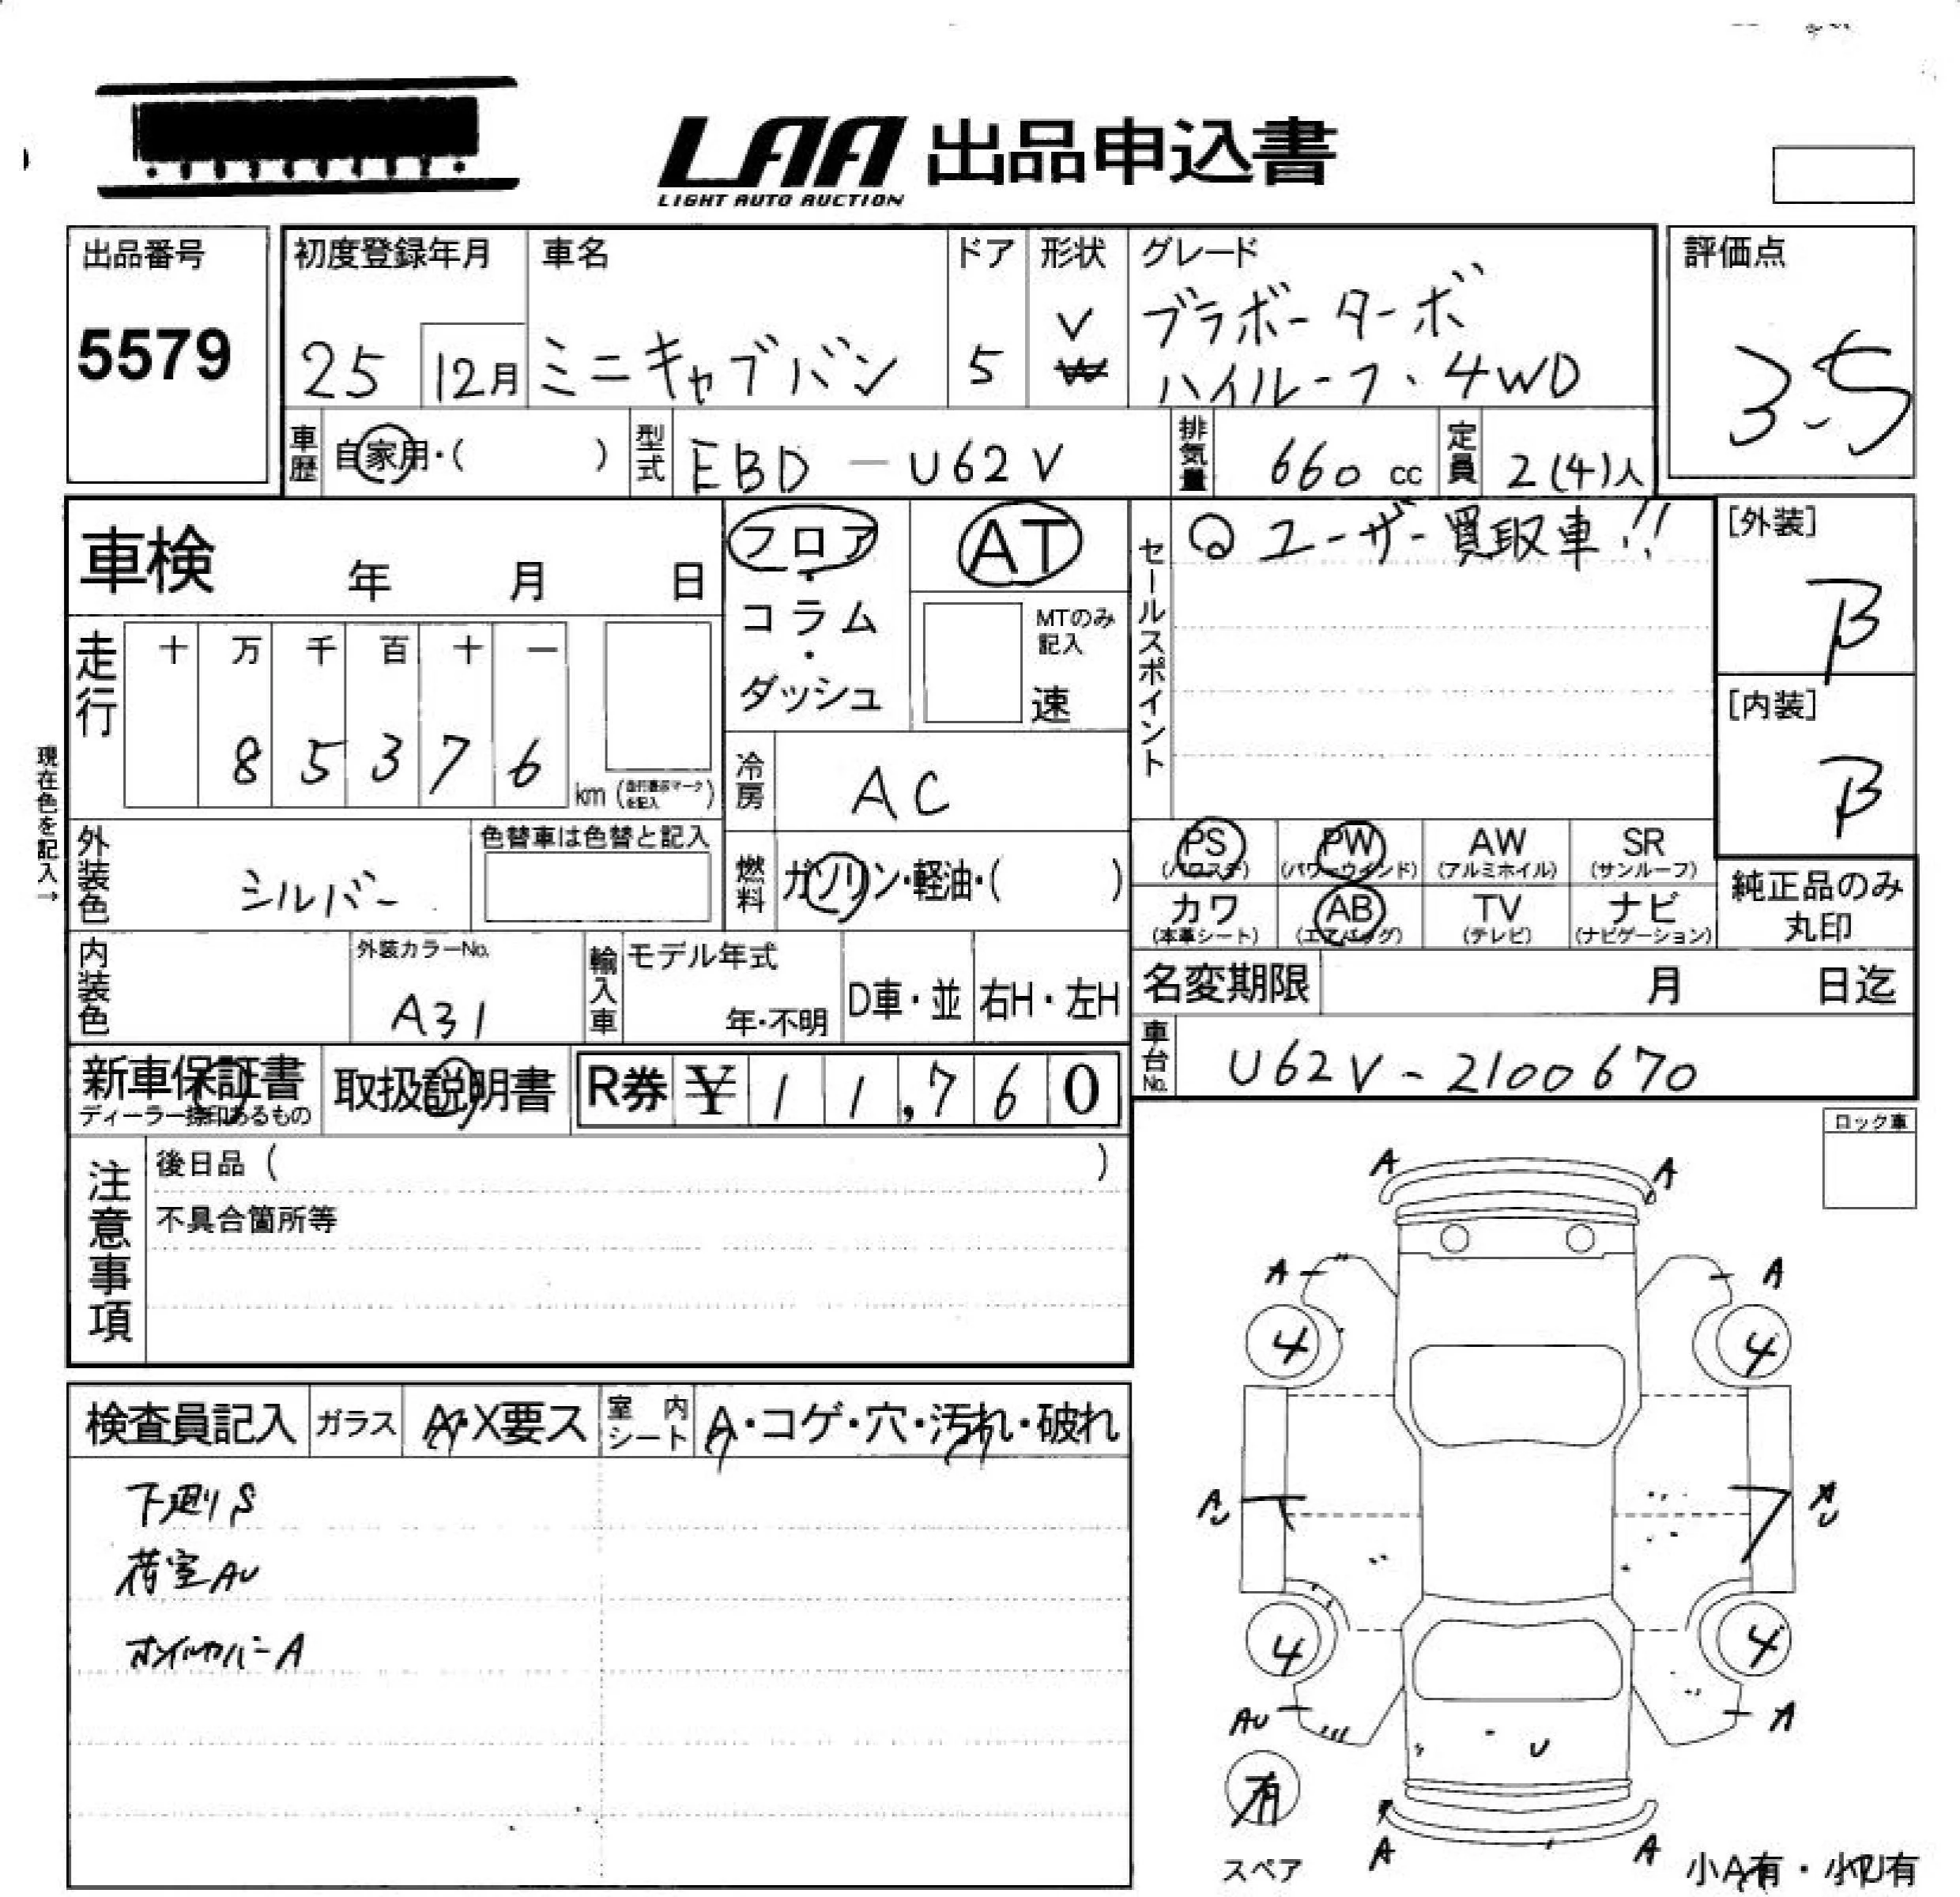 LAA 出品申込書
LIGHT AUTO AUCTION
出品番号
5579
初度登録年月
25 12月
車名
ミニキャブバン
ドア
5
形状
V
W
グレード
ブラボーターボ
ハイルーフ、4WD
評価点
3.5
車歴 自家用・( )
型式 EBD-U62V
排気量 660 cc
定員 2(4)人
車検 年 月 日
フロア・コラム・ダッシュ
AT
MTのみ記入
速
セールスポイント
ユーザー買取車!!
[外装]
B
[内装]
B
走行
十 万 千 百 十 一
8 5 3 7 6
km (走行表示マークを記入)
現在色を記入→
冷房 AC
外装色 シルバー
色替車は色替と記入
燃料 ガソリン・軽油・( )
PS (パワステ)
PW (パワーウインド)
AW (アルミホイル)
SR (サンルーフ)
カワ (本革シート)
AB (エアバッグ)
TV (テレビ)
ナビ (ナビゲーション)
純正品のみ
丸印
内装色
外装カラーNo.
A31
輸入車
モデル年式
年・不明
D車・並
右H・左H
名変期限 月 日迄
車台No. U62V-2100670
新車保証書
ディーラー捺印あるもの
取扱説明書
R券 ¥11,760
ロック車
注意事項
後日品 ( )
不具合箇所等
検査員記入
ガラス A・X要ス
室内シート A・コゲ・穴・汚れ・破れ
下廻りS
荷室AU
A A
A A
4 4
AU
4 4
AU A
U
有
スペア
A A
小A有・小U有